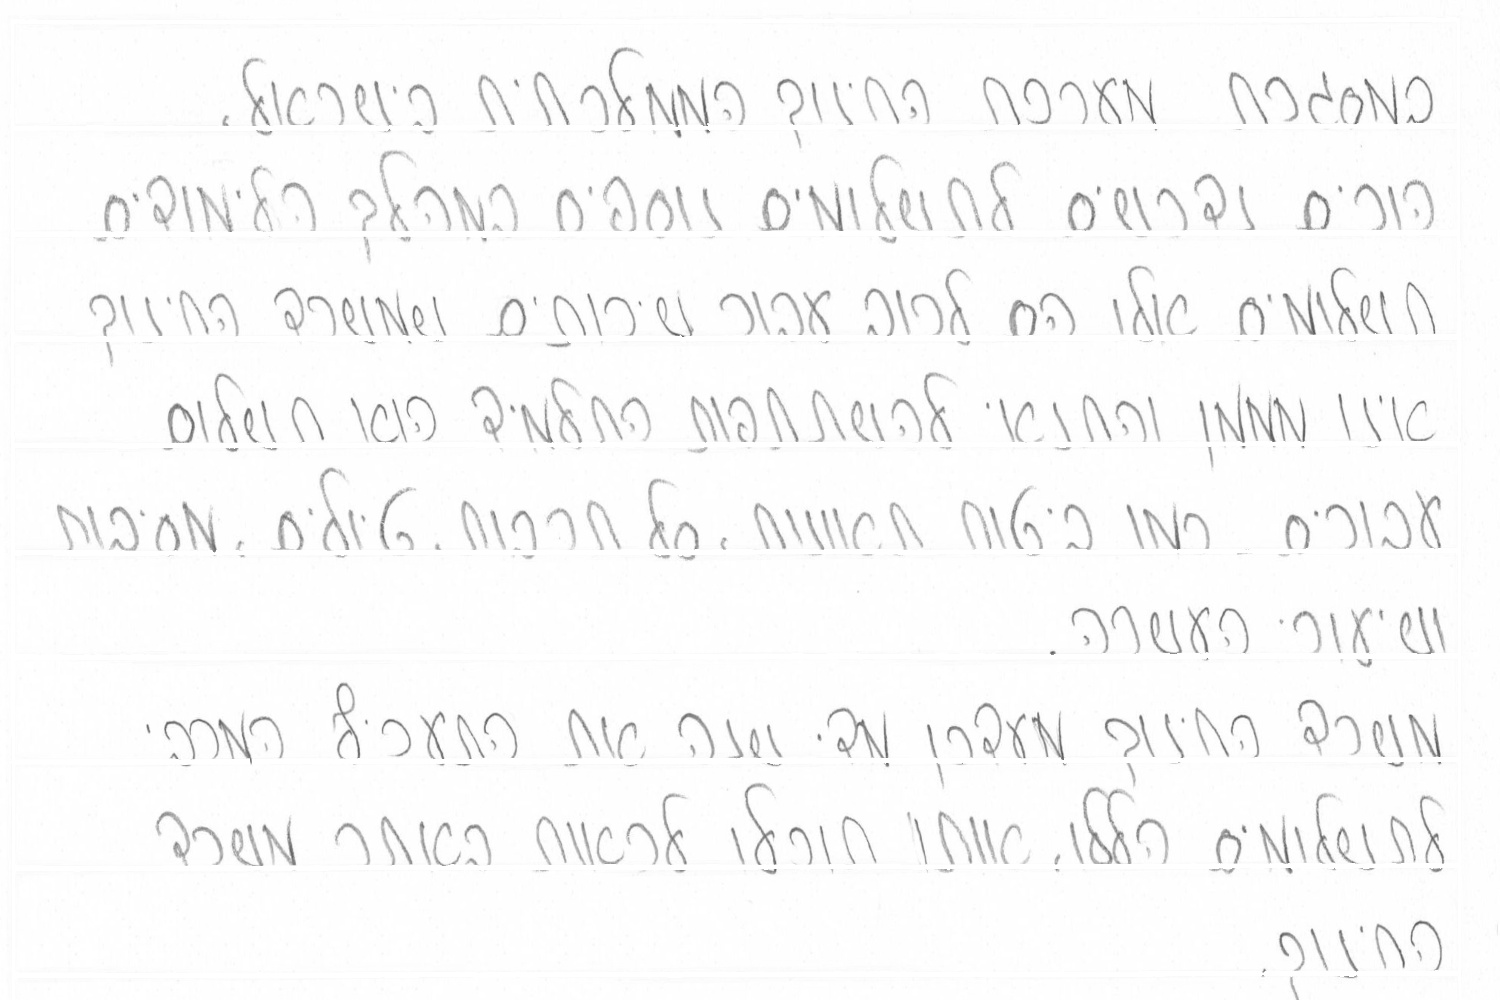 במסגרת מערכת החינוך הממלכתית בישראל,
הורים נדרשים לתשלומים נוספים במהלך הלימודים
תשלומים אלו הם לרוב עבור שירותים שמשרד החינוך
אינו מממן והתנאי להשתתפות התלמיד הוא תשלום
עבורים כמו ביטוח תאונות, סל תרבות, טיולים, מסיבות
ושיעורי העשרה.
משרד החינוך מעדכן מדי שנה את התעריף המרבי
לתשלומים הללו, אותו תוכלו לראות באתר משרד
החינוך,